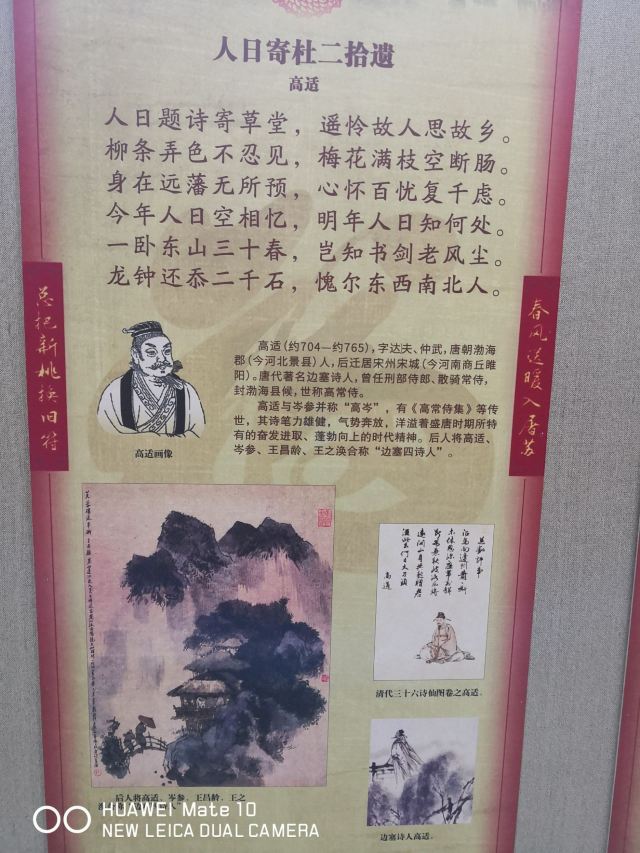 人日寄杜二拾遗
高适
人日题诗寄草堂，遥怜故人思故乡。
柳条弄色不忍见，梅花满枝空断肠。
身在远藩无所预，心怀百忧复千虑。
今年人日空相忆，明年人日知何处。
一卧东山三十春，岂知书剑老风尘。
龙钟还忝二千石，愧尔东西南北人。
总把新桃换旧符
春风送暖入屠苏
高适（约704—约765），字达夫、仲武，唐朝渤海
郡（今河北景县）人，后迁居宋州宋城（今河南商丘睢
阳）。唐代著名边塞诗人，曾任刑部侍郎、散骑常侍，
封渤海县候，世称高常侍。
高适与岑参并称“高岑”，有《高常侍集》等传
世，其诗笔力雄健，气势奔放，洋溢着盛唐时期所特
有的奋发进取、蓬勃向上的时代精神。后人将高适、
岑参、王昌龄、王之涣合称“边塞四诗人”。
高适画像
高适
清代三十六诗仙图卷之高适。
后人将高适、岑参、王昌龄、王之
边塞诗人高适。
HUAWEI Mate 10
NEW LEICA DUAL CAMERA